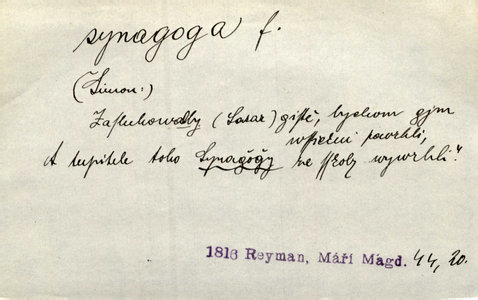 synagoga f.
(Simon:)
Zasluhowalby (Lazar) gistě, bychom gjm
wssickni powrhli,
A tupitele toho Synagógy ze sskoly wywrhli."
1816 Reyman, Máří Magd. 44, 20.